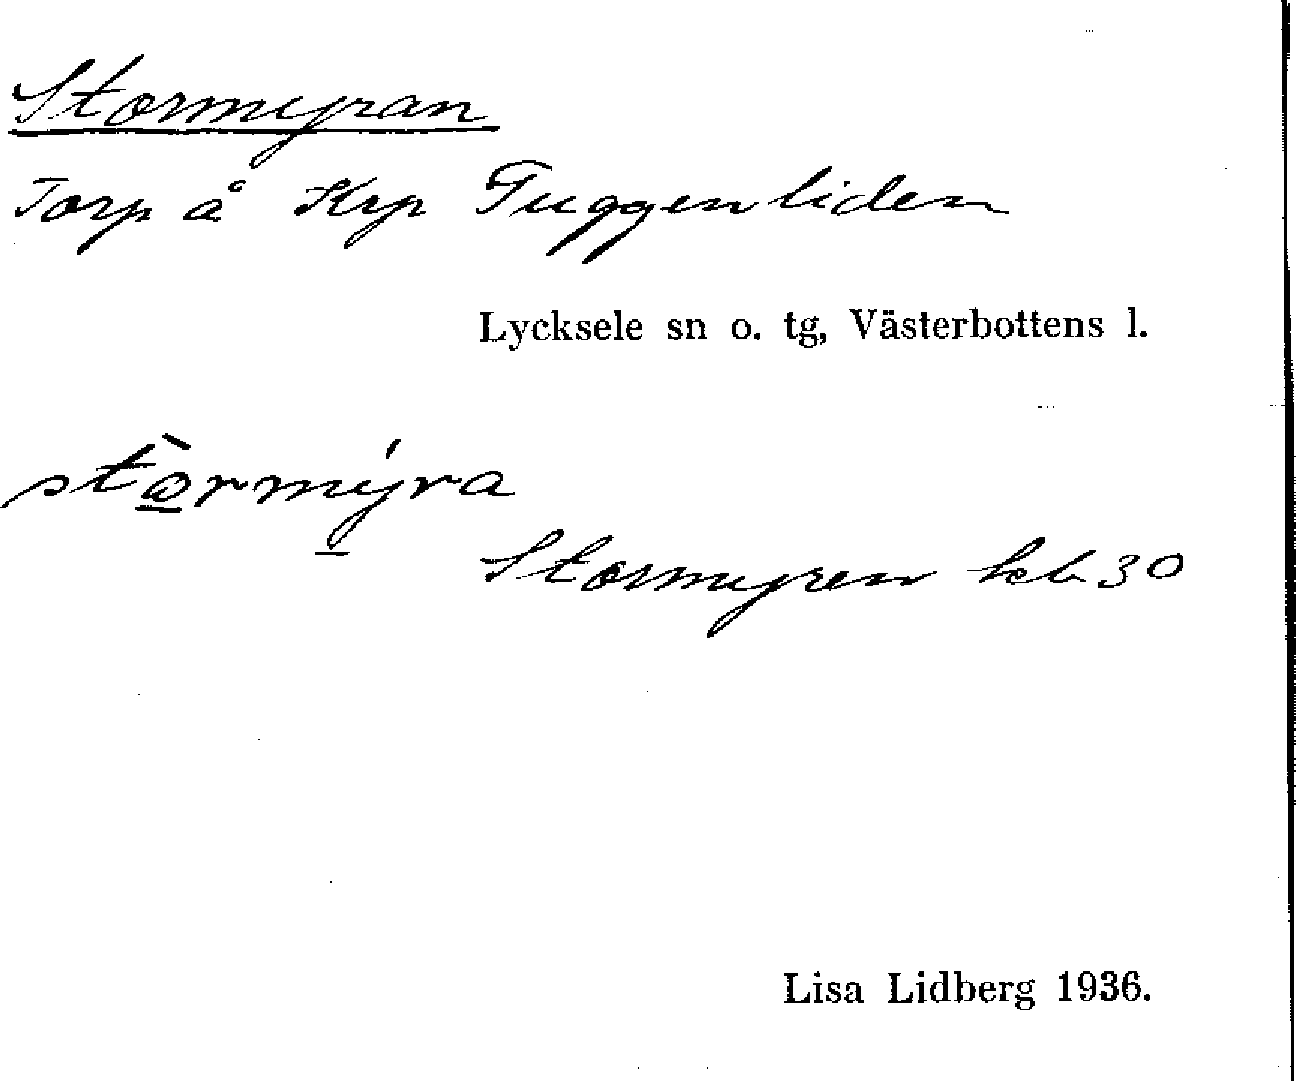 Stormyran
Torp å Krp Tuggenliden
Lycksele sn o. tg, Västerbottens l.
stò̱rmý̱ra
Stormyren hcb 30
Lisa Lidberg 1936.